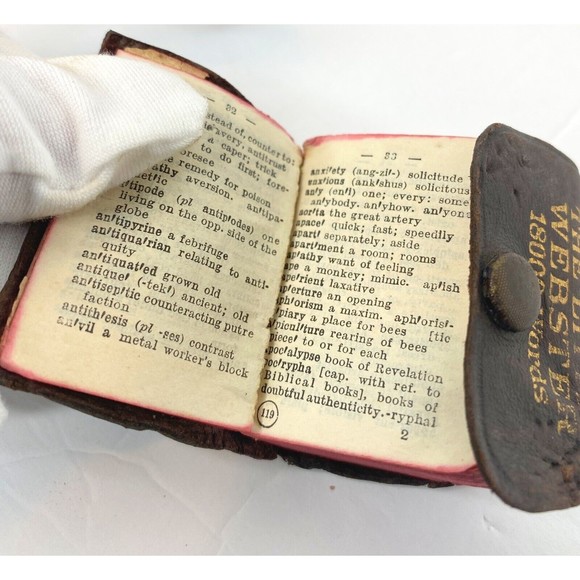 — 32 —
instead of, counter to:
slavery, antitrust
a caper; trick
to do first; fore-
foresee
remedy for poison
aversion. antipa-
(pl antipŏdes) one
living on the opp. side of the
globe
an'tipyrine a febrifuge
an'tiqua'rian relating to anti-
quity
an'tiquat'ed grown old
antique' (-tek') ancient; old
an'tisep'tic counteracting putre
faction
antith'esis (pl -ses) contrast
an'vil a metal worker's block
— 33 —
anxi'ety (ang-zi'-) solicitude
anx'ious (ank'shus) solicitous
an'y (en'i) one; every: some
an'ybody. an'yhow. an'yone
aor'ta the great artery
apace' quick; fast; speedily
apart' separately; aside
apart'ment a room; rooms
ap'athy want of feeling
ape a monkey; mimic. ap'ish
ape'rient laxative
ap'erture an opening
aph'orism a maxim. aph'orist-
apiary a place for bees [tic
apiculture rearing of bees
apiece' to or for each
apoc'alypse book of Revelation
apoc'rypha [cap. with ref. to
Biblical books], books of
doubtful authenticity.-ryphal
119
2
WEBSTER
18000 words